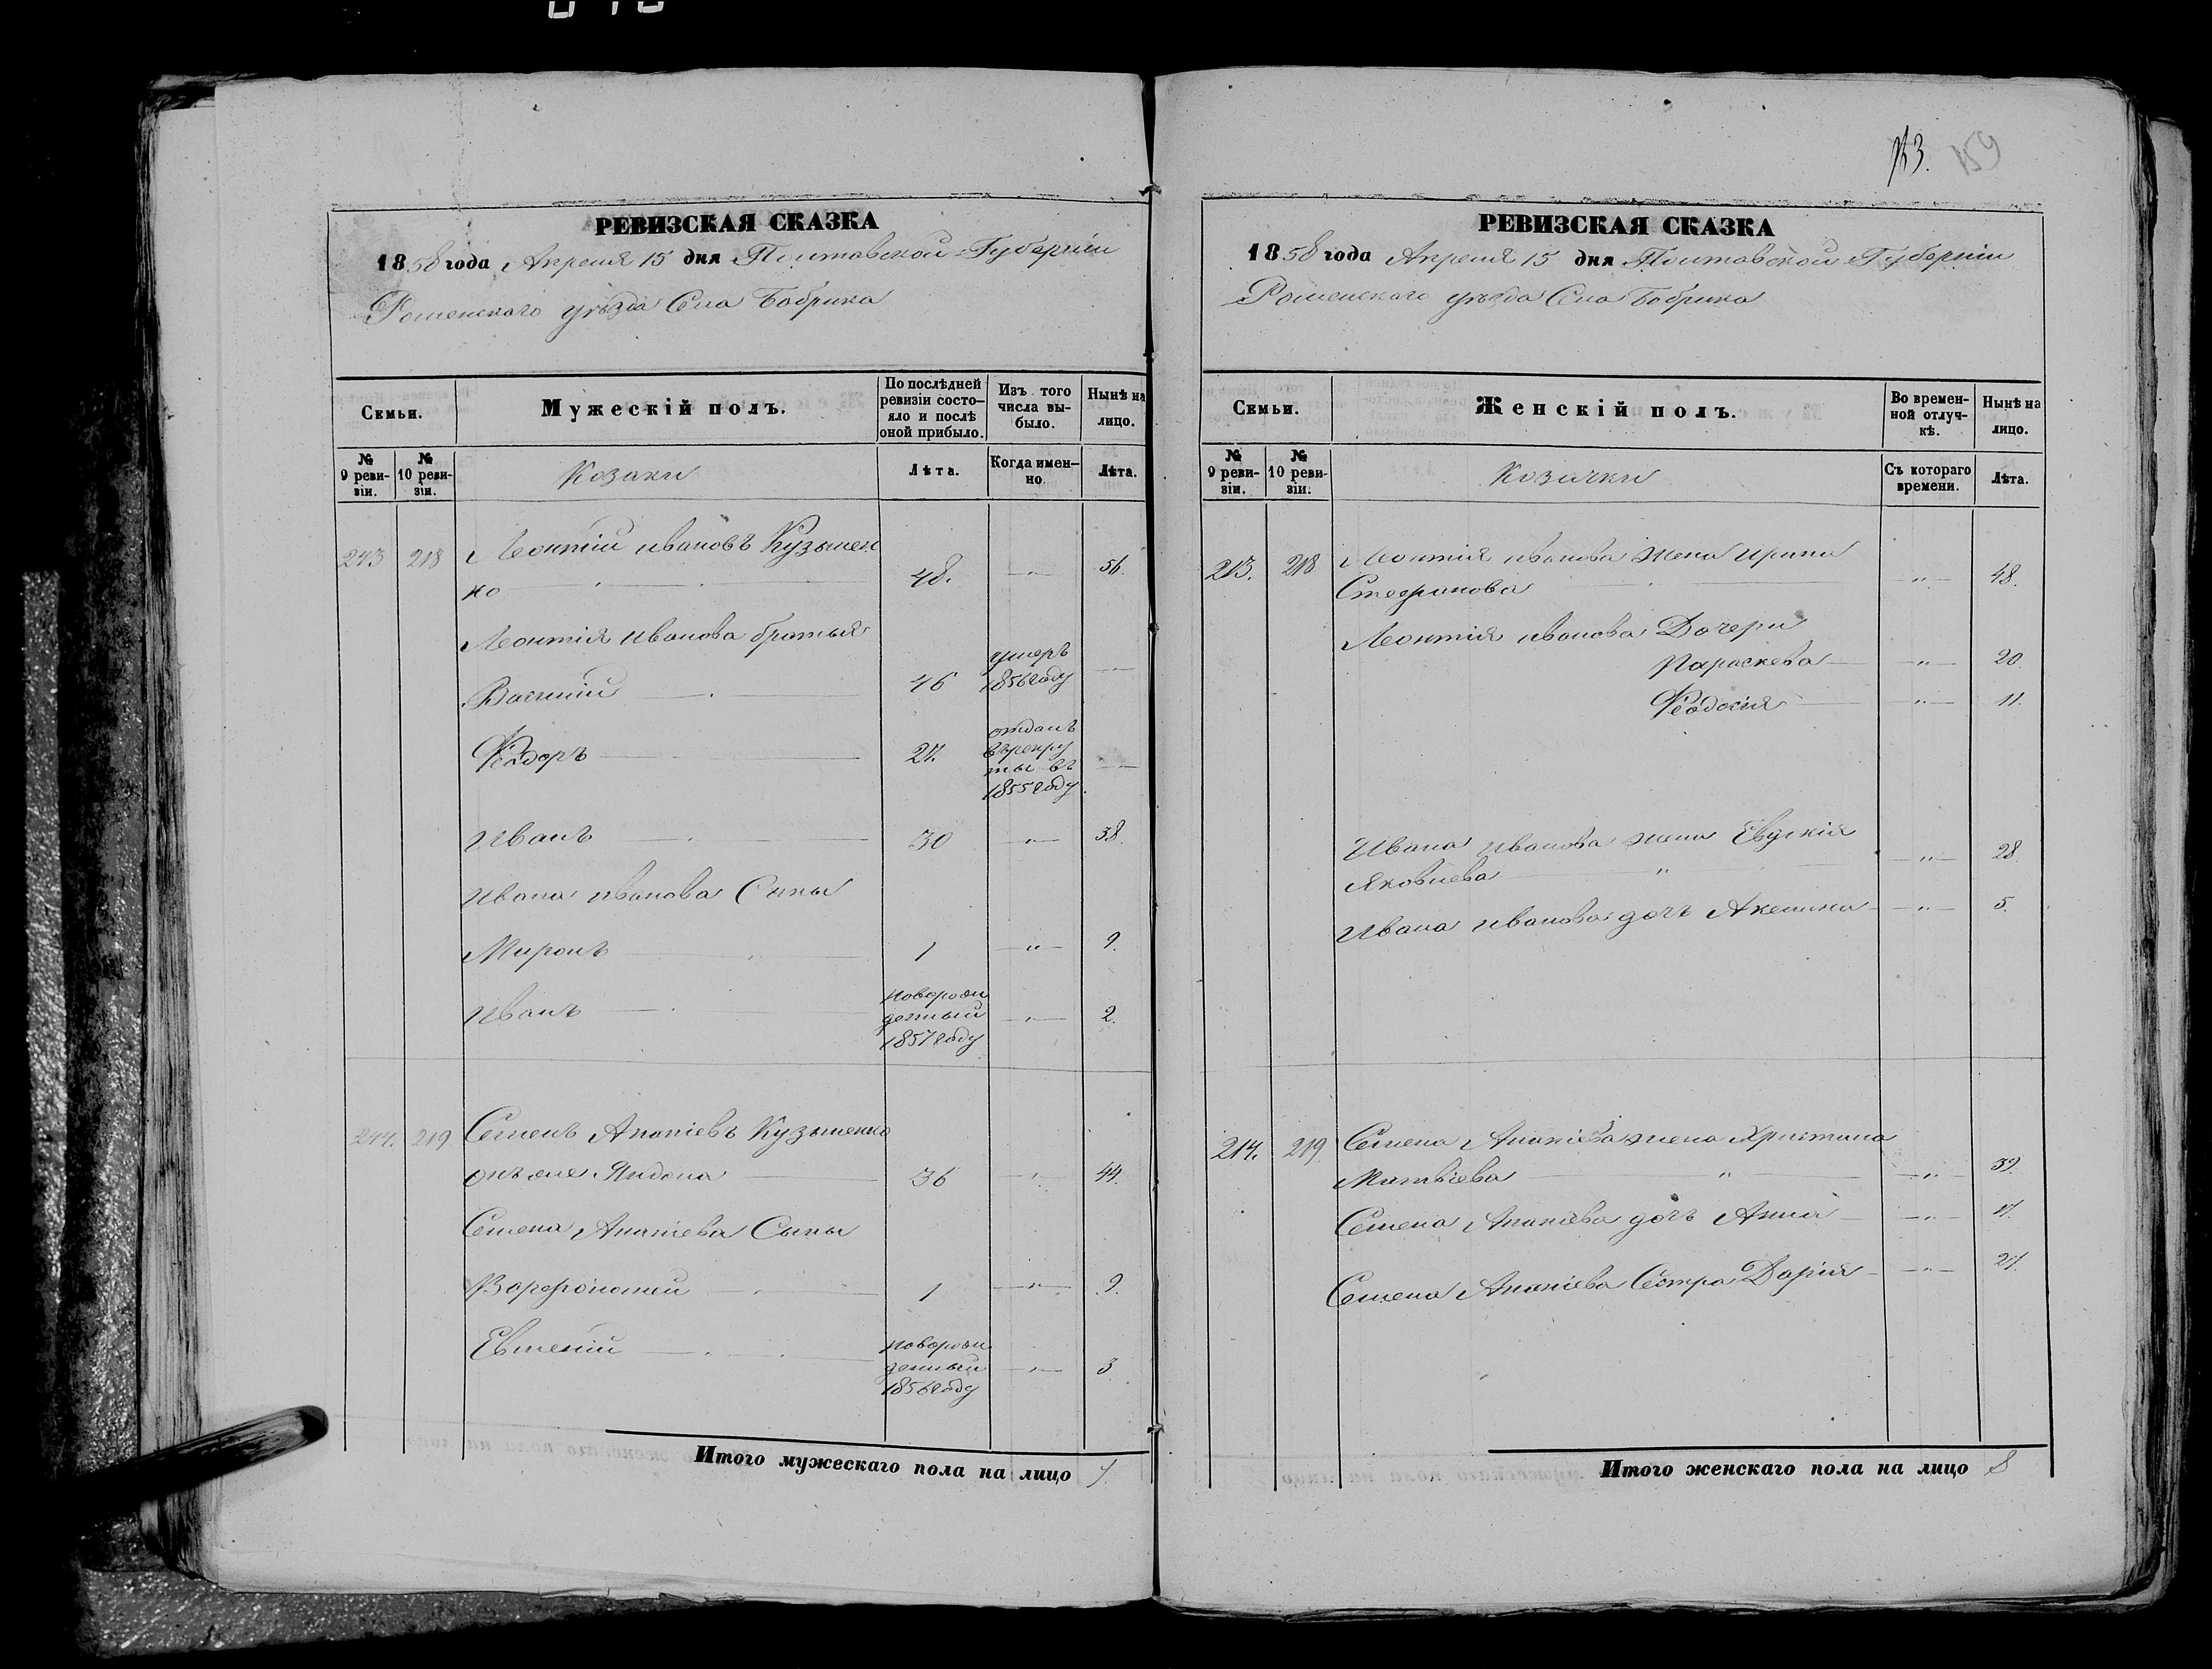 713. 159
РЕВИЗСКАЯ СКАЗКА
1858 года Апреля 15 дня Полтавской Губерніи
Роменскаго уѣзда Села Бобрика
Семьи.
Мужескій полъ.
По послѣдней ревизіи состо-
яло и послѣ оной прибыло.
Изъ того числа вы-
было.
Нынѣ на лицо.
№ 9 реви-
зіи.
№ 10 реви-
зіи.
Козаки
Лѣта.
Когда имен-
но.
Лѣта.
243 218 Леонтій Ивановъ Кузьмен
ко 48. „ 56.
Леонтія Иванова братья
Василій 46 умеръ 1856 году „
Федоръ 27. отданъ
въ рекру
ты въ
1855 году „
Иванъ 30 „ 38.
Ивана Иванова Сыны
Миронъ 1 „ 9.
Иванъ новорож
денный
1857 году „ 2.
244. 219 Семенъ Ананіевъ Кузьменко
онъ же 36 „ 44.
Семена Ананіева Сыны
Варфоломей 1 „ 9.
Евменій новорож
денный
1856 году „ 3.
Итого мужескаго пола на лицо 7.
РЕВИЗСКАЯ СКАЗКА
1858 года Апреля 15 дня Полтавской Губерніи
Роменскаго уѣзда Села Бобрика
Семьи.
Женскій полъ.
Во времен-
ной отлуч-
кѣ.
Нынѣ на лицо.
№ 9 реви-
зіи.
№ 10 реви-
зіи.
Козачки
Съ котораго времени.
Лѣта.
213. 218 Леонтія Иванова жена Ирина
Стефанова „ 48.
Леонтія Иванова Дочери
Параскева „ 20.
Феодосія „ 11.
Ивана Иванова жена Евдокія
Яковлева „ 28.
Ивана Иванова дочь Акелина „ 5.
214. 219 Семена Ананіева жена Христина
Матвіева „ 39.
Семена Ананіева дочь Анна „ 17.
Семена Ананіева Сестра Дарія „ 27.
Итого женскаго пола на лицо 8